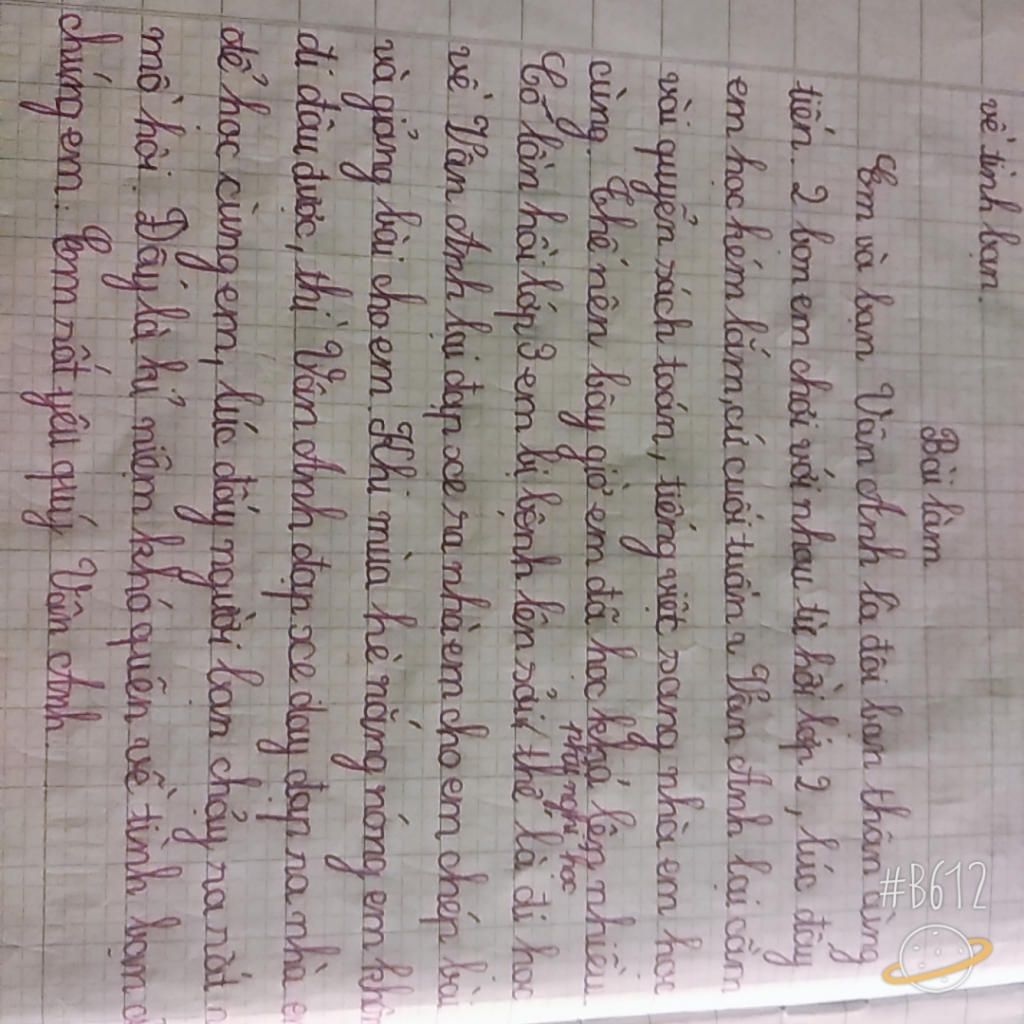 về tình bạn.
Bài làm
Em và bạn Vân Anh là đôi bạn thân cùng
tiến. 2 bọn em chơi với nhau từ hồi lớp 2, lúc đấy
em học kém lắm, cứ cuối tuần Vân Anh lại cầm
vài quyển sách toán, tiếng việt sang nhà em học
cùng. Thế nên bây giờ em đã học khá lên nhiều.
phải nghỉ học
Có lần hồi lớp 3 em bị bệnh lên sởi, thế là đi học
về Vân Anh lại đạp xe ra nhà em cho em chép bài
và giảng bài cho em. Khi mùa hè nắng nóng em
đi đâu được, thì Vân Anh đạp xe đạp ra nhà
để học cùng em, lúc đấy người bạn chảy ra rất
mồ hôi. Đấy là kỉ niệm khó quên về tình bạn
chúng em. Em rất yêu quý Vân Anh.
#B612